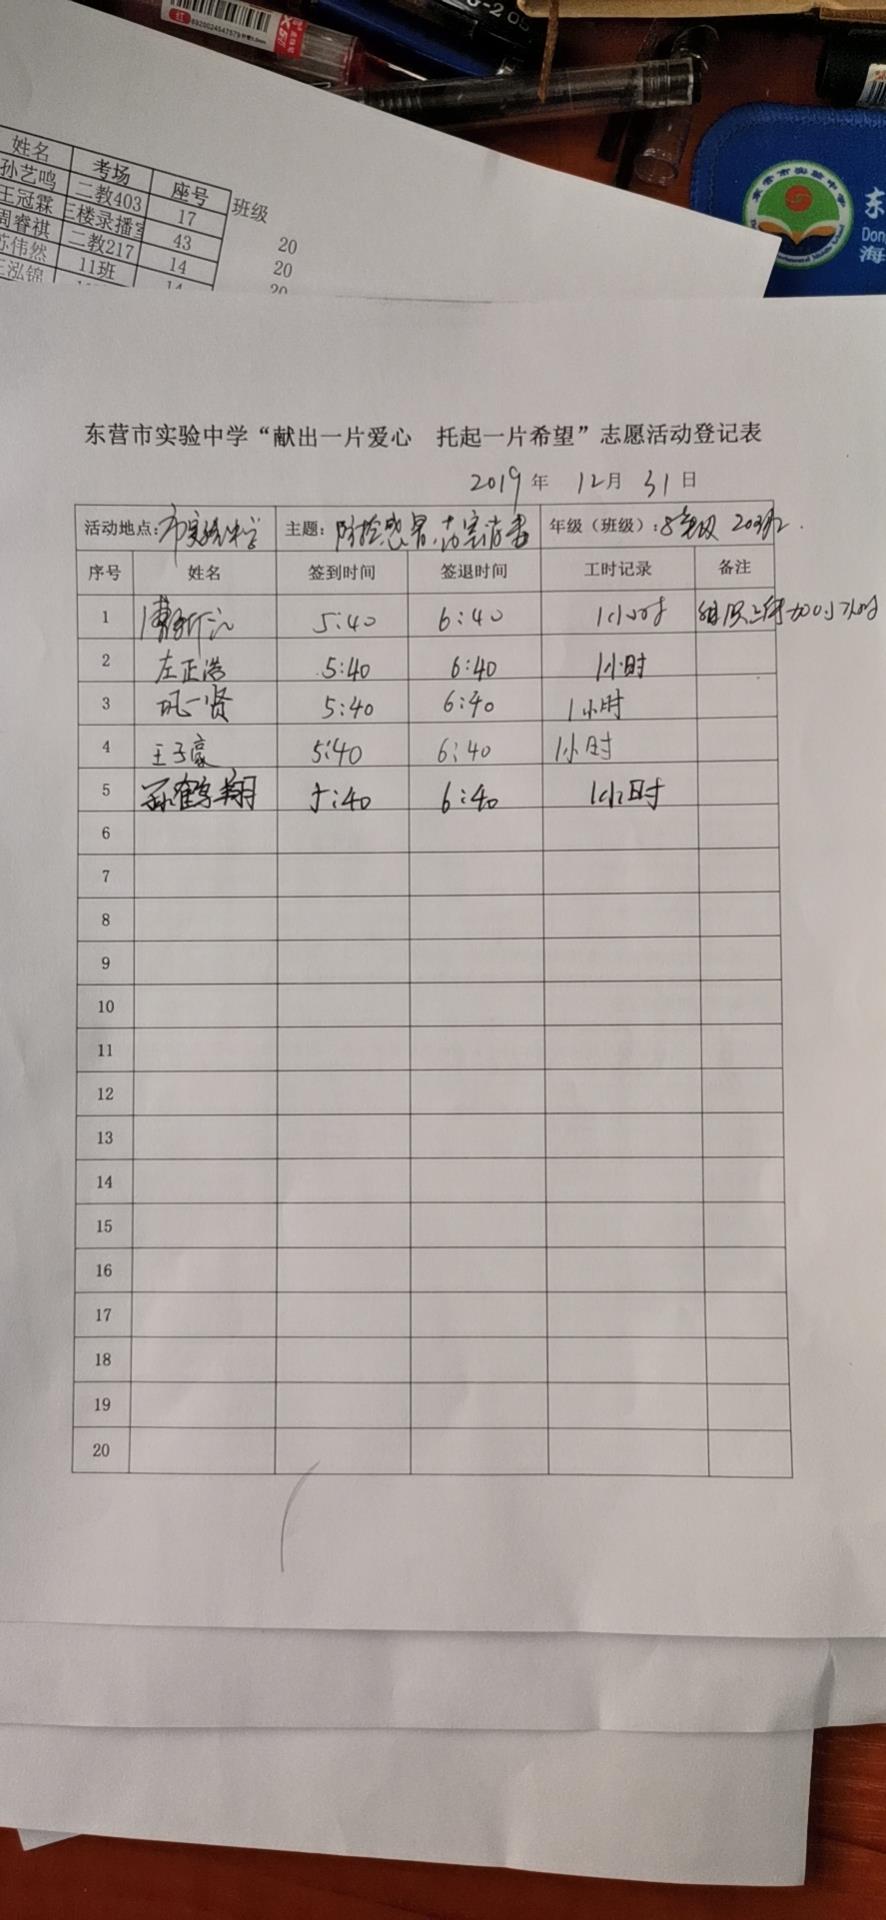 红 6920024547579
姓名 考场 座号 班级
孙艺鸣 二教403 17 20
王冠霖 三楼录播室 43 20
周睿祺 二教217 14 20
伟然 11班 14
泓锦
东
Dong
海
东营市实验中学“献出一片爱心 托起一片希望”志愿活动登记表
2019年 12月 31日
活动地点:市实验中学 主题:防控感冒,危害消毒 年级(班级): 级 20班.
序号 姓名 签到时间 签退时间 工时记录 备注
1 5:40 6:40 1小时 组织 加0.5小时
2 左正浩 5:40 6:40 1小时
3 巩一贤 5:40 6:40 1小时
4 王子豪 5:40 6:40 1小时
5 孙鹤翔 5:40 6:40 1小时
6
7
8
9
10
11
12
13
14
15
16
17
18
19
20